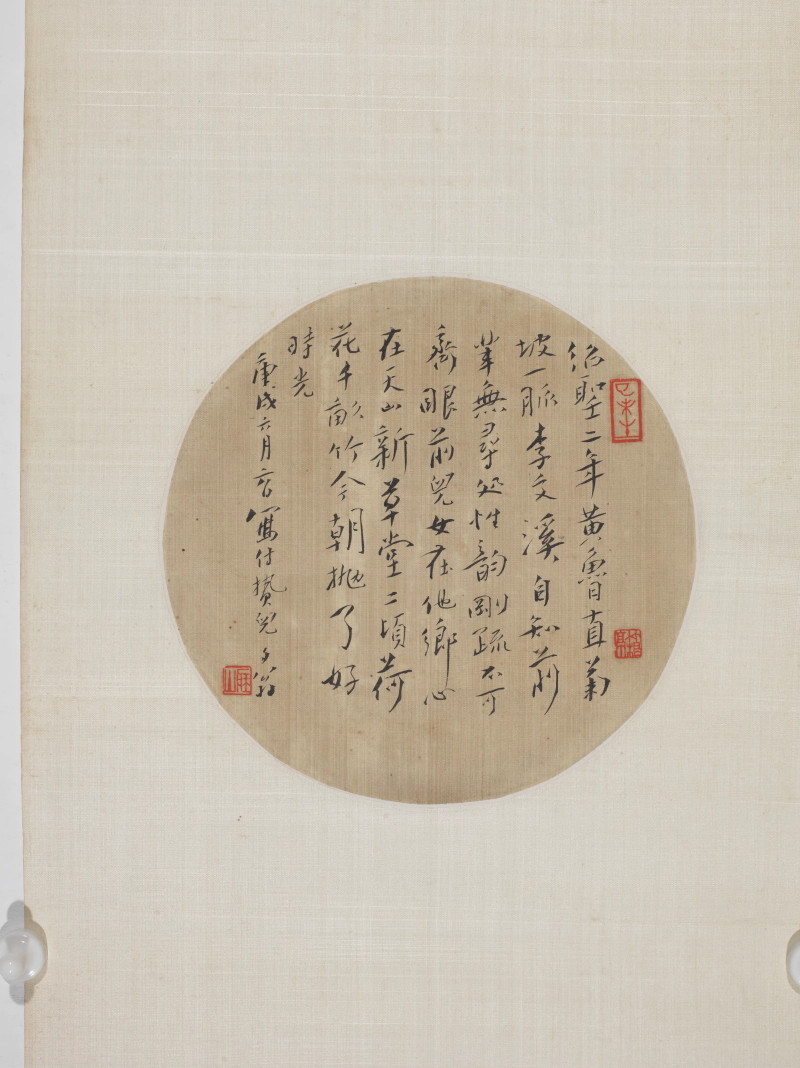 紹聖二年黃魯直菊
坡一脈李文溪自知前
輩無尋処性韻剛疏不可
齋眼前兒女在他鄉心
在天山新草堂二頃荷
花千畝竹今朝拋了好
時光
庚戌六月寫付兒翁